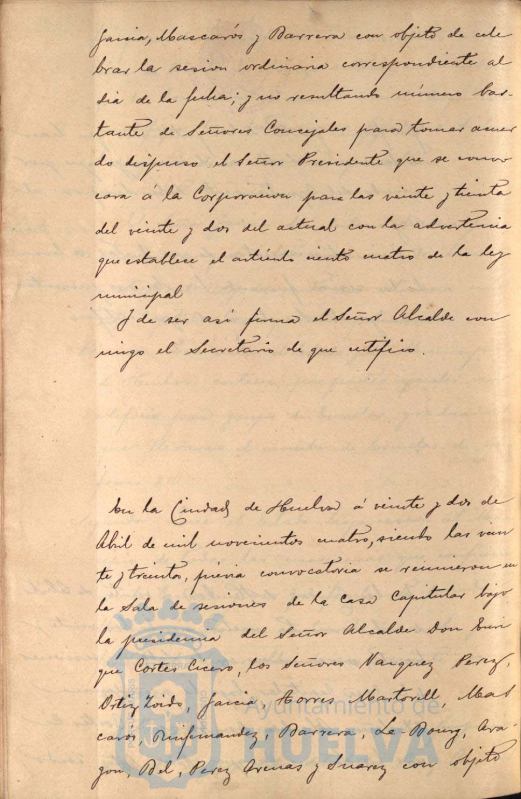 Garcia, Mascarós y Barrera con objeto de cele
brar la sesion ordinaria correspondiente al
dia de la fecha; y no resultando número bas-
tante de Señores Concejales para tomar acuer
do dispuso el Señor Presidente que se convo
cara á la Corporacion para las veinte y treinta
del veinte y dos del actual con la advertencia
que establece el artículo ciento cuatro de la ley
municipal
Y de ser así firma el Señor Alcalde con
migo el Secretario de que certifico.
En la Ciudad de Huelva á veinte y dos de
Abril de mil novecientos cuatro, siendo las vein
te y treinta, prévia convocatoria se reunieron en
la Sala de sesiones de la casa capitular bajo
la presidencia del Señor Alcalde Don Enri
que Cortes Cicero, los Señores Vazquez Perez,
Ortiz Zoido, Garcia, Torres Martorill, Mas
carós, Ruifernandez, Barrera, Le Bourg, Ara
gon, Bel, Perez Arenas y Suarez con objeto
Ayuntamiento de
HUELVA